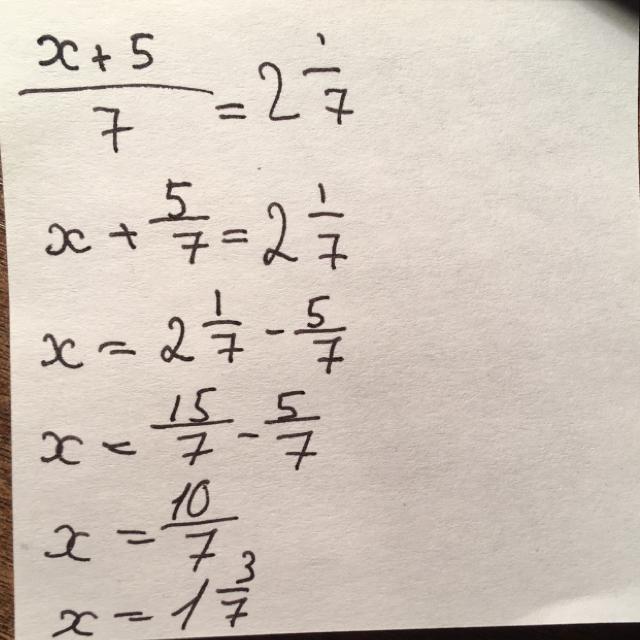 x + 5 / 7 = 2 1/7
x + 5/7 = 2 1/7
x = 2 1/7 - 5/7
x = 15/7 - 5/7
x = 10/7
x = 1 3/7